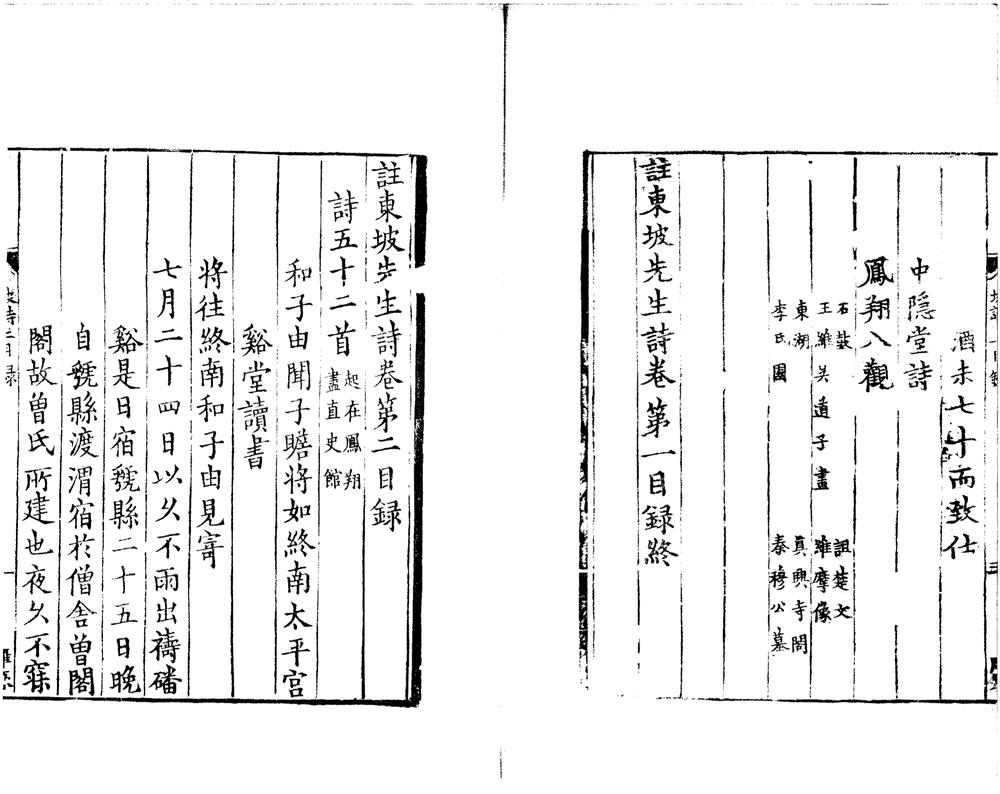 酒未七十而致仕
中隱堂詩
鳳翔八觀
石鼓 詛楚文
王維吳道子畫 維摩像
東湖 真興寺閣
李氏園 秦穆公墓
註東坡先生詩卷第一目録終
註東坡先生詩卷第二目録
詩五十二首 起在鳳翔盡直史館
和子由聞子瞻將如終南太平宮
谿堂讀書
將往終南和子由見寄
七月二十四日以久不雨出禱磻
谿是日宿虢縣二十五日晚
自虢縣渡渭宿於僧舍曾閣
閣故曾氏所建也夜久不寐